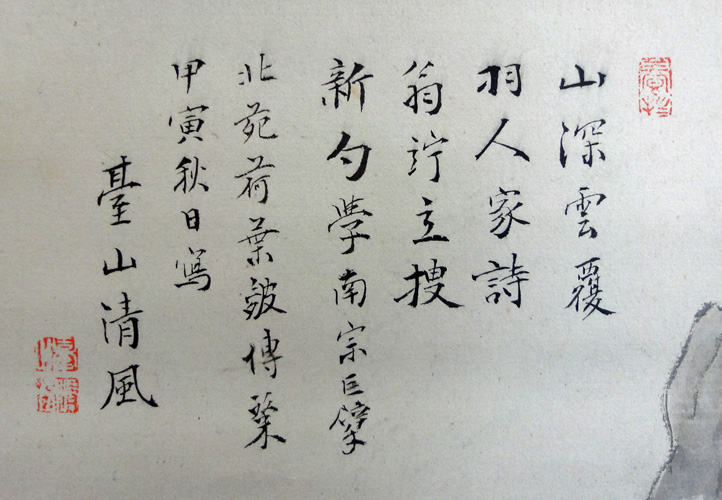 山深雲覆
羽人家詩
翁竚立搜
新勺學南宗巨擘
北苑荷葉皴傳
甲寅秋日寫
臺山清風